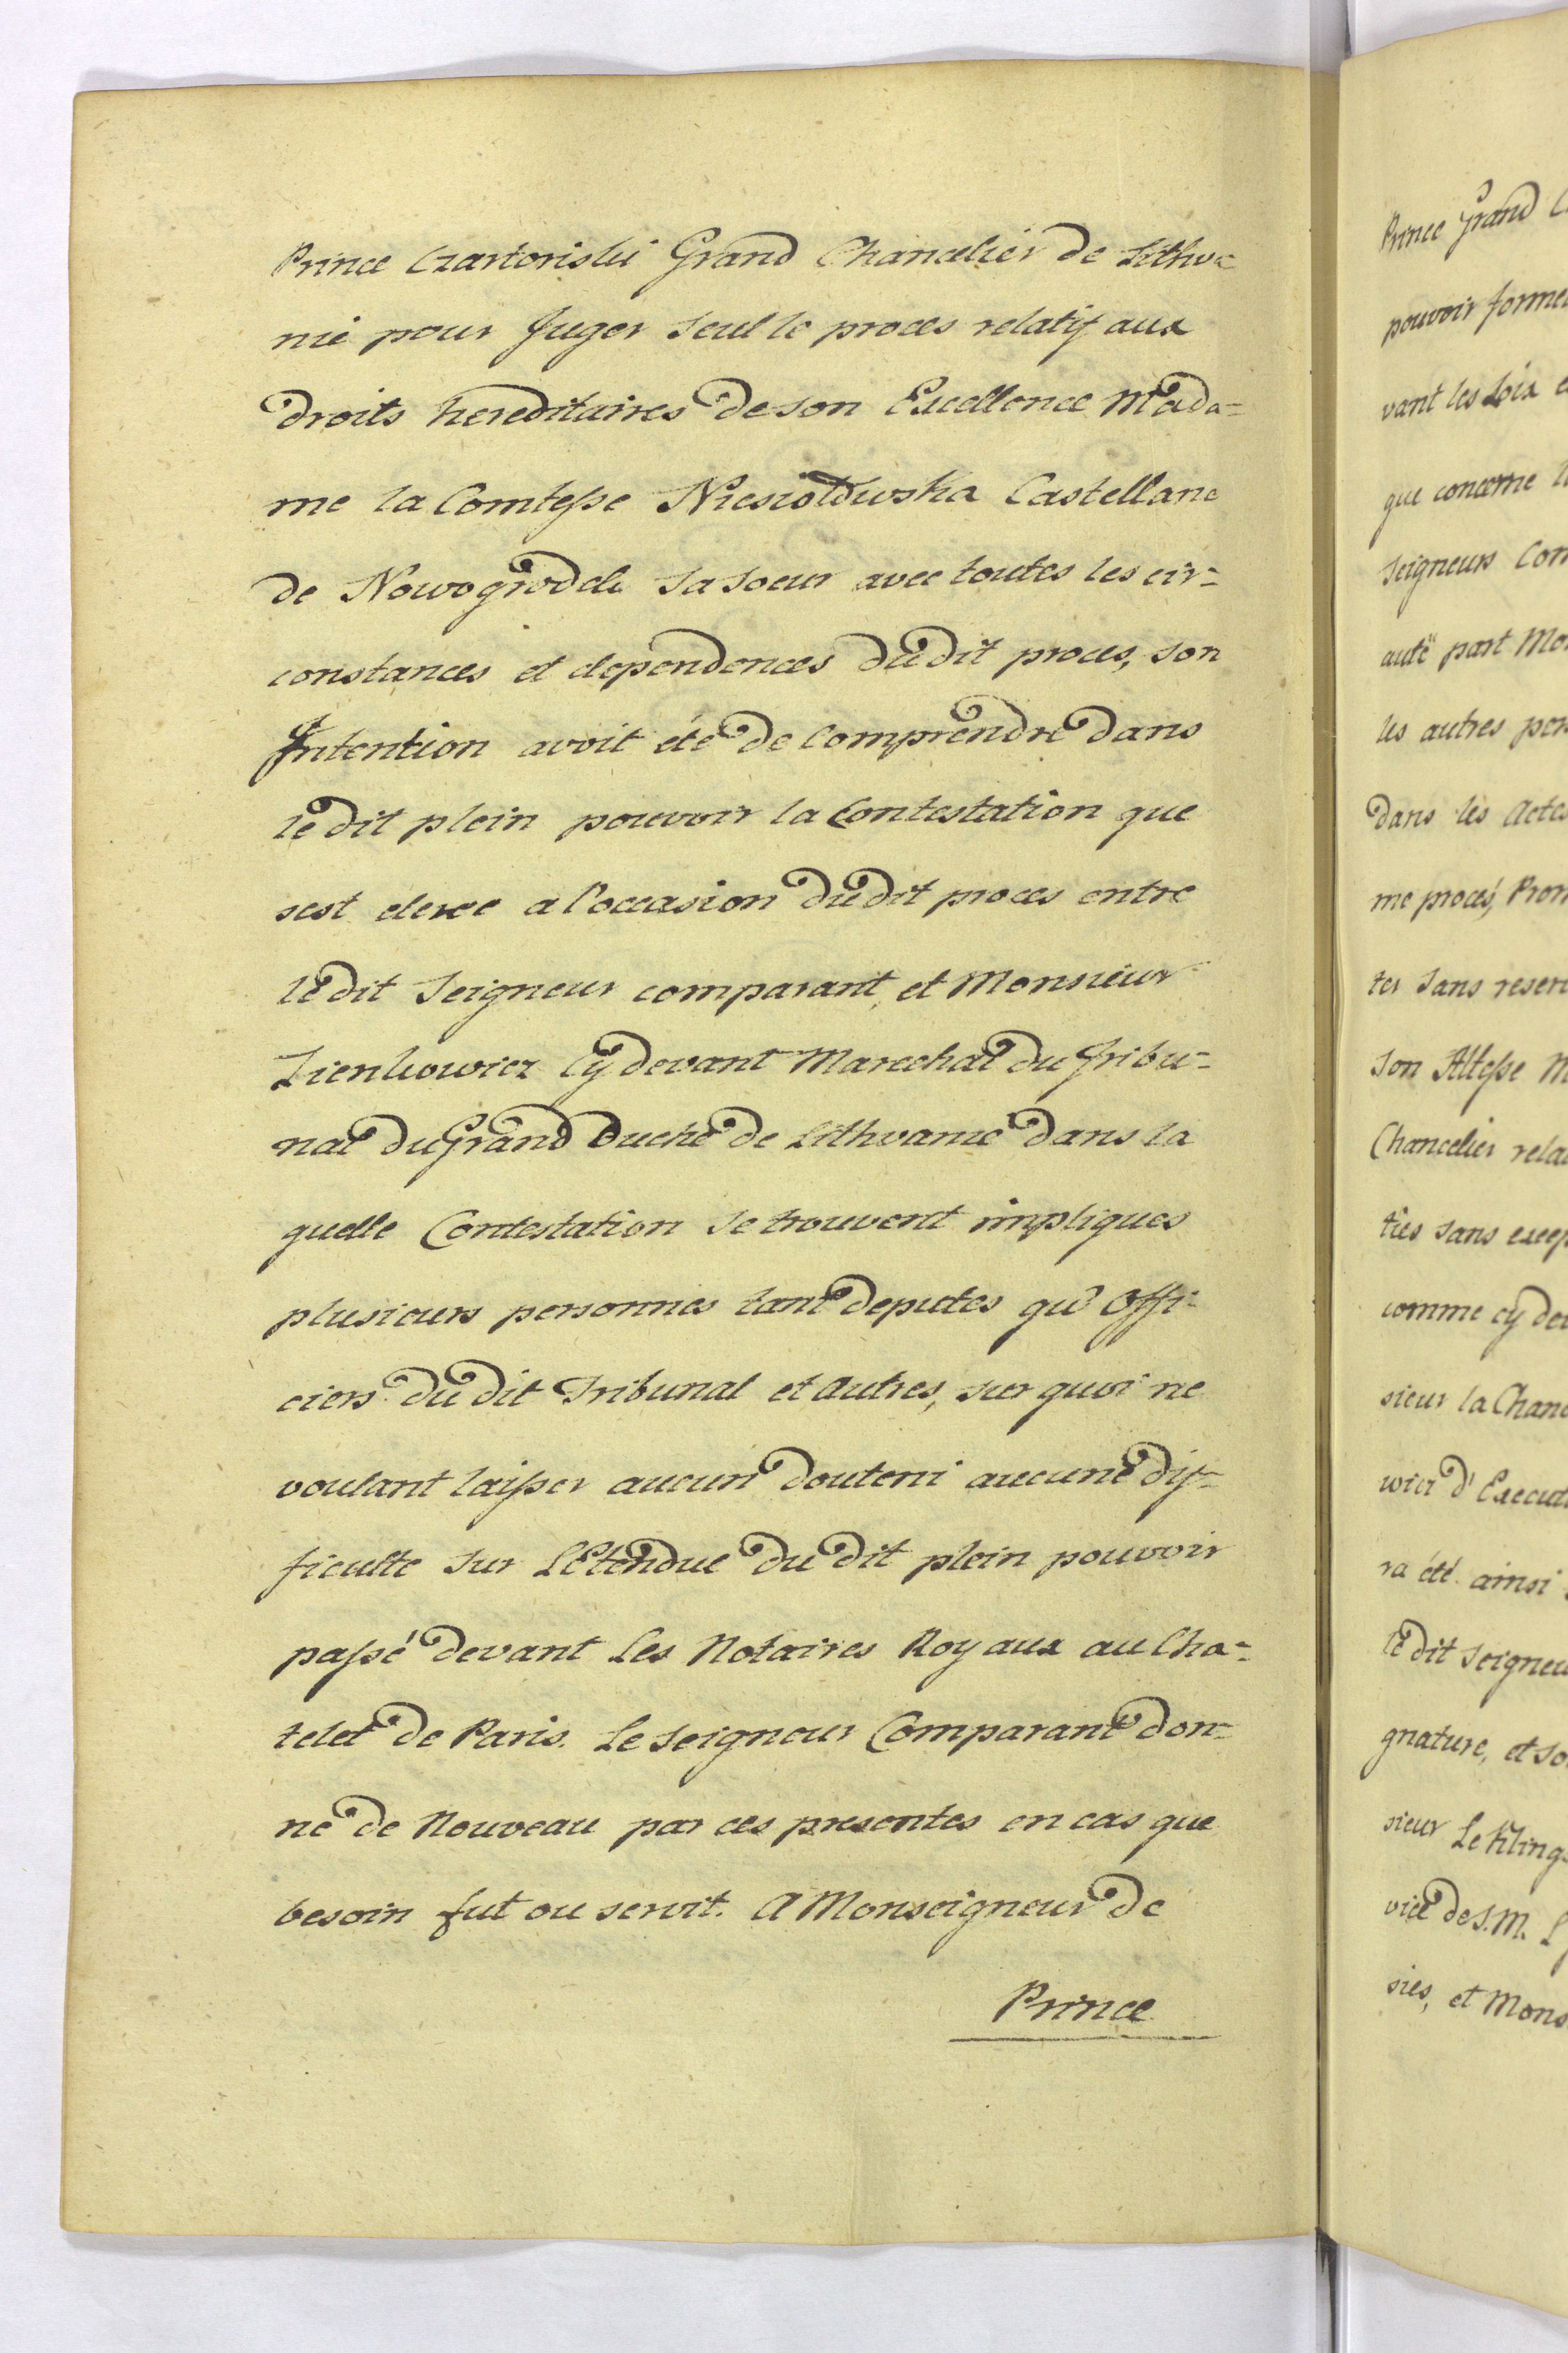 Prince Czartoriski Grand Chancelier de Lithva=
nie pour Juger Seul le proces relatif aux
droits hereditaires de son Excellence Mada=
me la Comtesse Niesiołowska Castellane
de Nowogrodek Sa Soeur avec toutes les cir=
constances et dependences du dit proces, son
Intention avoit été de Comprendre dans
le dit plein pouvoir la Contestation que
sest elevee a l'occasion du dit proces entre
le dit Seigneur comparant, et Monsieur
Cy devant Marechal du Tribu=
nal du Grand Duché de Lithvanie dans la
quelle Contestation Se trouvent impliques
plusieurs personnes tant deputes qu' Offi=
ciers du dit Tribunal et autres, sur quoi ne
voulant laisser aucun doute ni aucune dif=
ficulte Sur L'Etendue du dit plein pouvoir
passé devant Les Notaires Royaux au Cha=
telet de Paris. Le Seigneur Comparant don=
ne de Nouveau par ces presentes en cas que
besoin fut ou seroit. A Monseigneur de
Prince
Prince Grand
pouvoir
vant les Loix
que concerne
Seigneurs
auté part
les autres
dans les Actes
me procés,
ter Sans
Son Altesse
Chancelier
ties sans
comme cy
sieur la
d'
ra été ainsi
le dit
gnature, et
sieur Le
vice de S. M.
sies, et